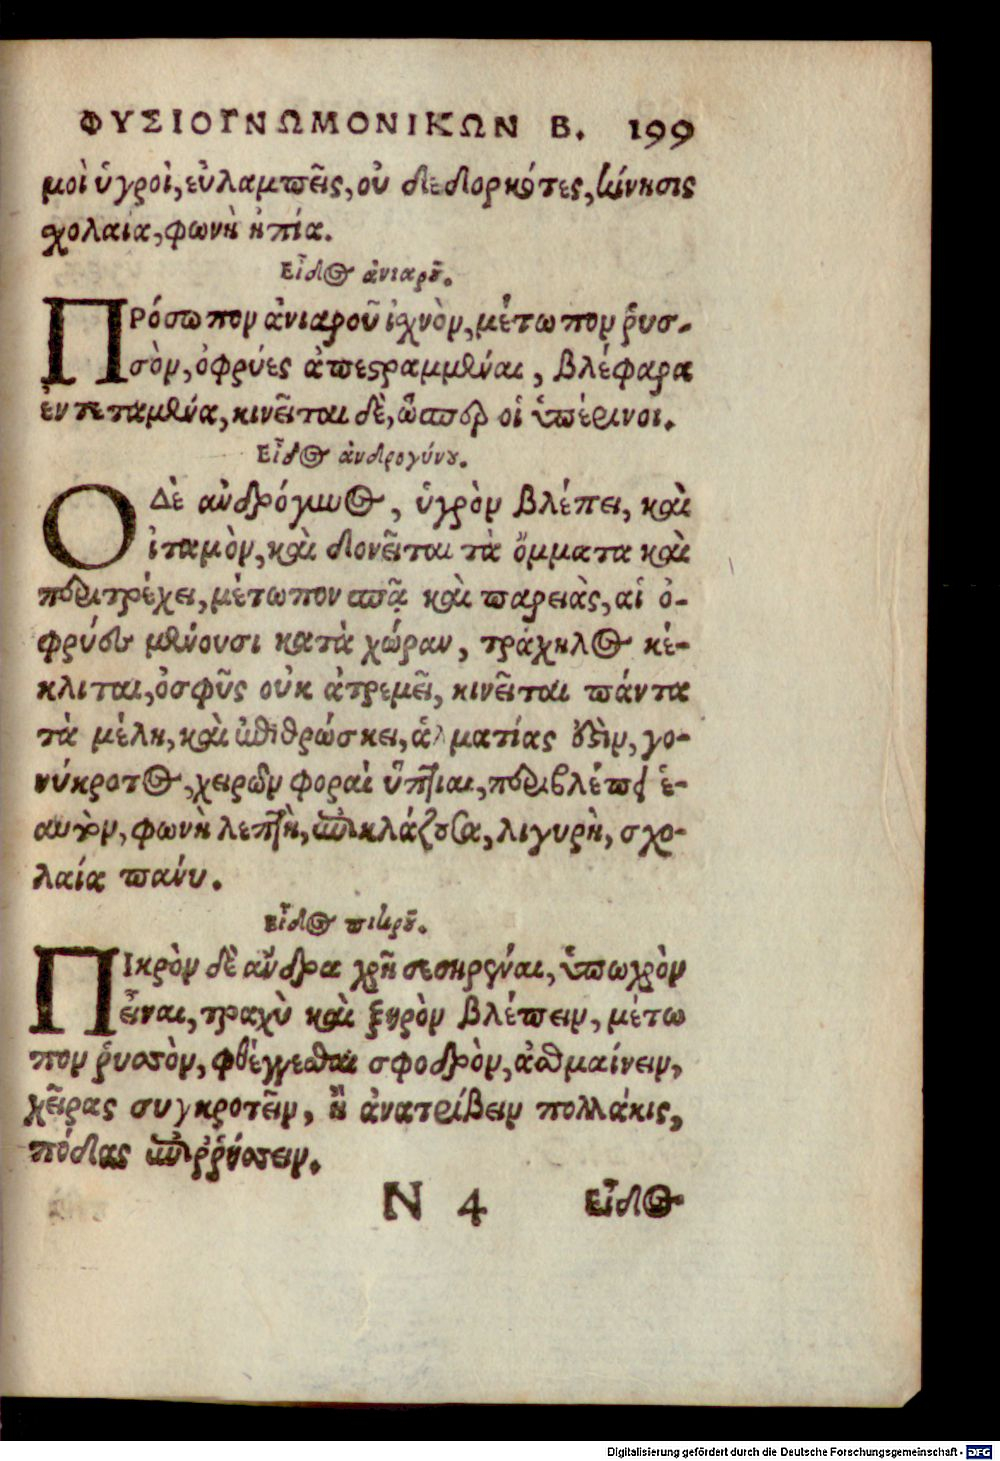 ΦΥΣΙΟΓΝΩΜΟΝΙΚΩΝ Β. 199
μοὶ ὑγροὶ, εὐλαμπεῖς, οὐ δεδορκότες, κίνησις
σχολαία, φωνὴ ἠπία.
Εἶδος ἀνιαροῦ.
ΠΡόσωπον ἀνιαροῦ ἰσχνὸν, μέτωπον ῥυσ-
σὸν, ὀφρύες ἀπεστραμμέναι, βλέφαρα
ἐντεταμένα, κινεῖται δὲ, ὥσπερ οἱ ὑπέρινοι.
Εἶδος ἀνδρογύνου.
Ο Δὲ ἀνδρόγυνος, ὑγρὸν βλέπει, καὶ
ἰταμὸν, καὶ δονεῖται τὰ ὄμματα καὶ
περιτρέχει, μέτωπον σπᾷ καὶ παρειὰς, αἱ ὀ-
φρύες μένουσι κατὰ χώραν, τράχηλος κέ-
κλιται, ὀσφῦς οὐκ ἀτρεμεῖ, κινεῖται πάντα
τὰ μέλη, καὶ ἐπιθρώσκει, ἁλματίας ἐστὶν, γο-
νύκροτος, χειρῶν φοραὶ ὕπτιαι, περιβλέπει ἑ-
αυτὸν, φωνὴ λεπτὴ, ἐπικλάζουσα, λιγυρὴ, σχο-
λαία πάνυ.
Εἶδος πικροῦ.
ΠΙκρὸν δὲ ἄνδρα χρὴ σεσηρέναι, ὕπωχρὸν
εἶναι, τραχὺ καὶ ξηρὸν βλέπειν, μέτω
πον ῥυσσὸν, φθέγγεσθαι σφοδρὸν, ἀσθμαίνειν,
χεῖρας συγκροτεῖν, ἢ ἀνατρίβειν πολλάκις,
πόδας ἐπιῤῥήσσειν.
N 4 Εἶδος
Digitalisierung gefördert durch die Deutsche Forschungsgemeinschaft - DFG